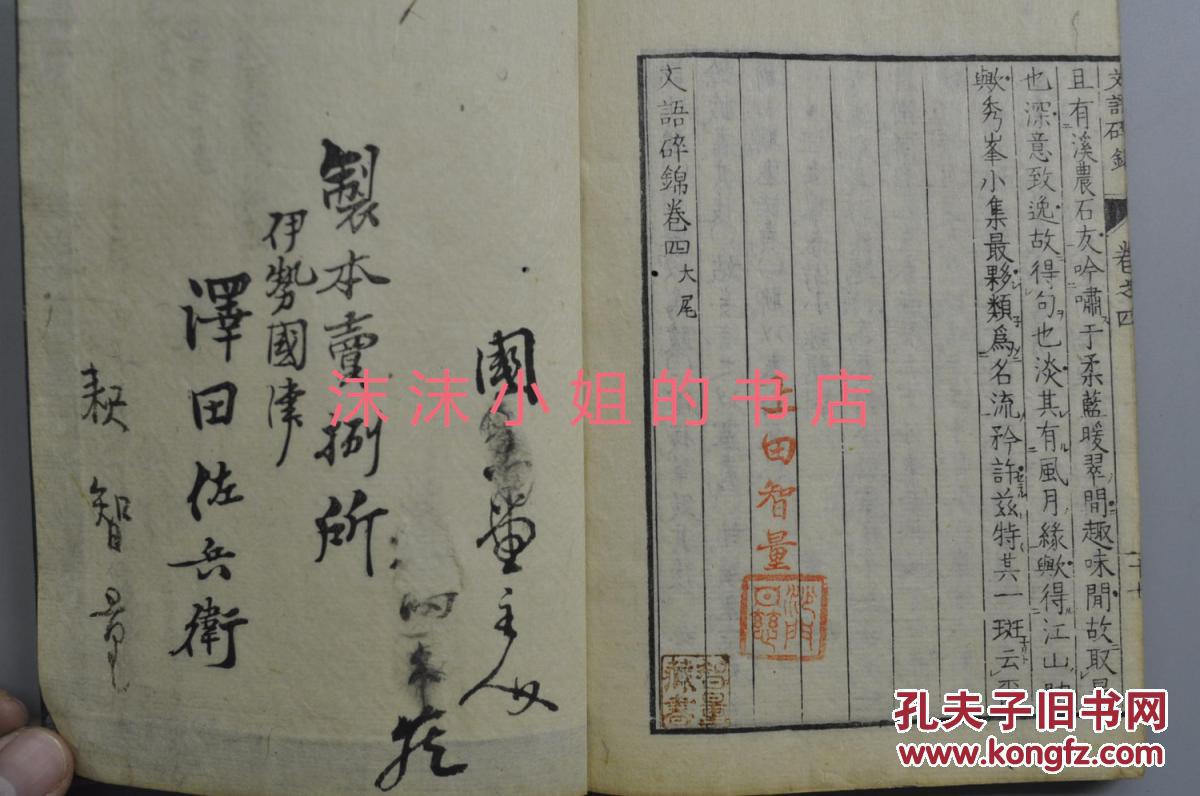 文語碎錦
卷之四
且有溪農石友吟嘯于柔藍暖翠間趣味閒故取
也深意致逸故得句也淡其有風月緣歟得江山
歟秀峯小集最夥類爲名流矜許茲特其一斑云
文語碎錦卷四大尾
田智量
沙門
智量
藏書
主人
四
製本賣捌所
伊勢國津
澤田佐兵衛
智量
沫沫小姐的书店
孔夫子旧书网
www.kongfz.com